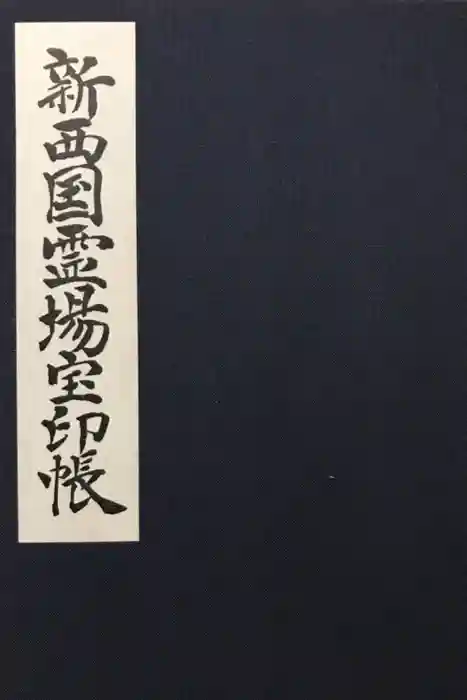 新西国霊場宝印帳